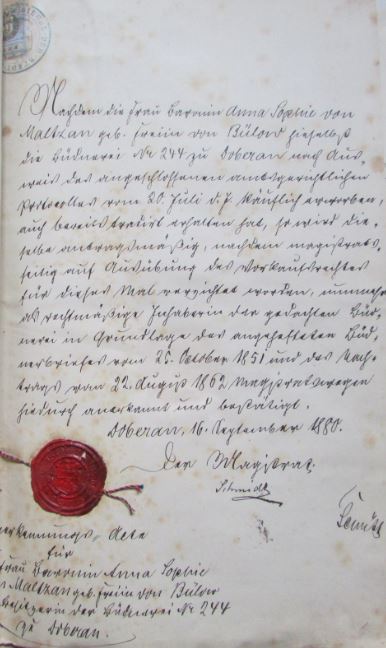 Nachdem die Frau Baronin Anna Sophie von
Maltzan geb. Freiin von Bülow hieselbst
die Büdnerei No 244 zu Doberan nach Aus-
weis des angeschlossenen amtsgerichtlichen
Protocolles vom 20. Juli d. J. käuflich erworben,
auch bereits tradirt erhalten hat, so wird die-
selbe antragsmäßig, nachdem magistrats-
seitig auf Ausübung des Vorkaufsrechtes
für dieses Mal verzichtet worden, nunmehr
als rechtmäßige Inhaberin der gedachten Büd-
nerei in Grundlage des angehefteten Büd-
nerbriefes vom 25. October 1851 und des Nach-
trags vom 22. August 1862 Magistratswegen
hiedurch anerkannt und bestätigt.
Doberan, 16. September 1880.
Der Magistrat.
Schmidt
erkennungs-Acte
für
Frau Baronin Anna Sophie
Maltzan geb. Freiin von Bülow
besitzerin der Büdnerei No 244
zu Doberan.